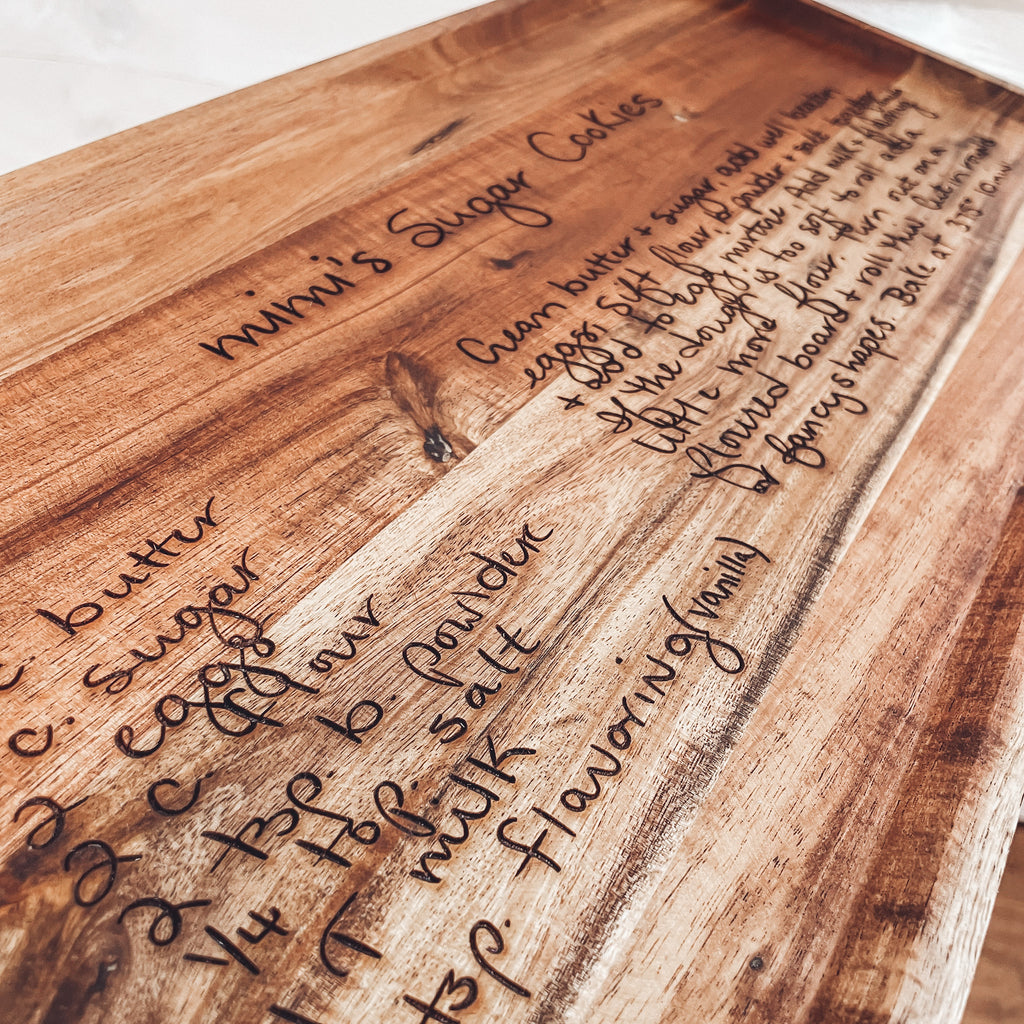 mimi's Sugar Cookies
c. butter
c. sugar
2 eggs
2 c. flour
2 tsp. b. powder
1/4 tsp. salt
T milk
tsp. flavoring (vanilla)
Cream butter + sugar, add well beaten
eggs. Sift flour, b powder + salt together
+ add to egg mixture. Add milk + flavoring
If the dough is too soft to roll add a
little more flour. Turn out on a
floured board + roll thin. Cut in rounds
or fancy shapes. Bake at 375° 10 min